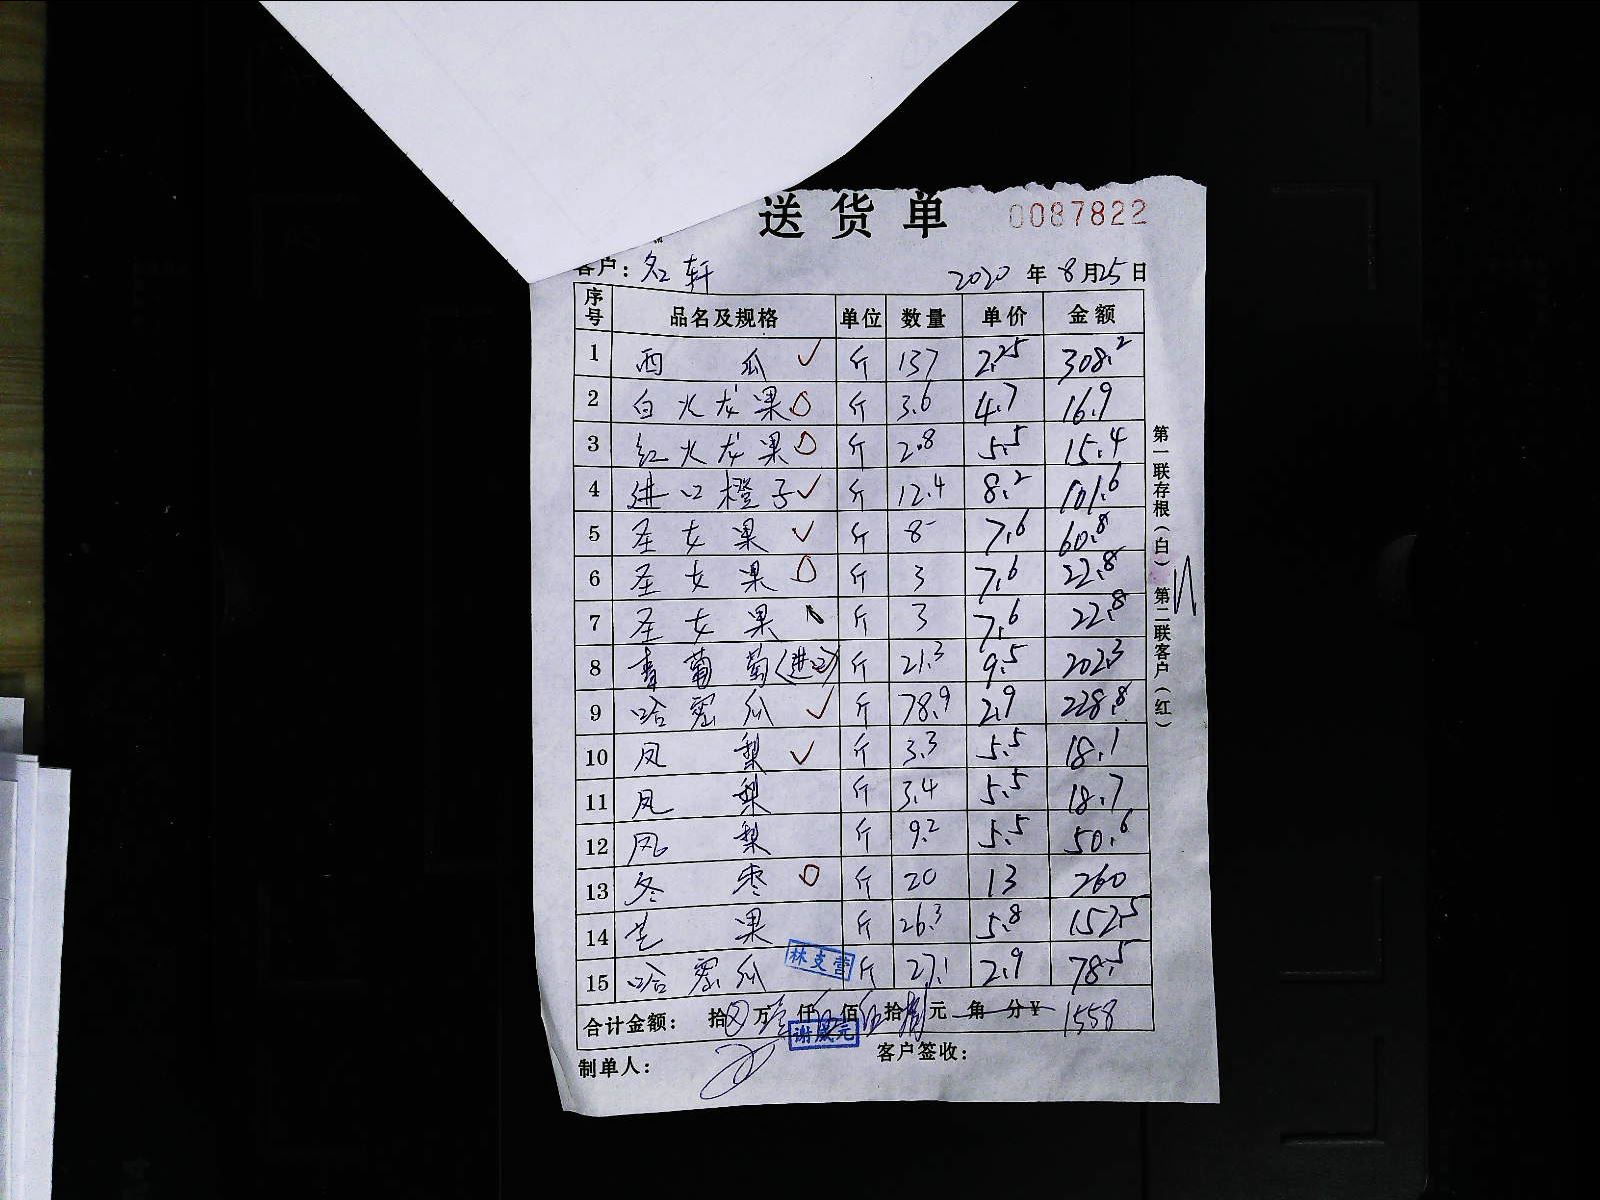 送货单 0087822
客户：名轩 2020年8月25日
序号 品名及规格 单位 数量 单价 金额
1 西瓜 ✓ 斤 137 2.25 308.2
2 白火龙果 斤 3.6 4.7 16.9
3 红火龙果 斤 2.8 5.5 15.4
4 进口橙子 ✓ 斤 12.4 8.2 101.6
5 圣女果 ✓ 斤 8 7.6 60.8
6 圣女果 斤 3 7.6 22.8
7 圣女果 斤 3 7.6 22.8
8 青葡萄(进口) 斤 21.3 9.5 202.3
9 哈密瓜 ✓ 斤 78.9 2.9 228.8
10 凤梨 ✓ 斤 3.3 5.5 18.1
11 凤梨 斤 3.4 5.5 18.7
12 凤梨 斤 9.2 5.5 50.6
13 冬枣 斤 20 13 260
14 芒果 斤 26.3 5.8 152.5
15 哈密瓜 斤 27.1 2.9 78.5
合计金额： 拾 万 仟 佰 拾 元 角 分 ¥ 1558
制单人： 客户签收：
第一联存根（白） 第二联客户（红）